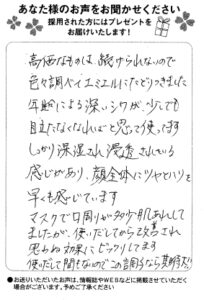 あなた様のお声をお聞かせください
採用された方にはプレゼントを
お届けいたします!
高価なものは続けられないので
色々調べてエミエルにたどりつきました
年齢による深いシワが少しでも
目立たなくなればと思って使ってます
しっかり保湿され浸透されている
感じがあり、顔全体にツヤとハリを
早くも感じています
マスクで口周りが多少肌あれして
ましたが、使いだしてから改善され
思わぬ効果にビックリしてます
使いだして間もないのでこの調子なら期待大!
●お送りいただいたお声は、情報誌やWEBなどに掲載させていただく
場合がございます。予めご了承ください